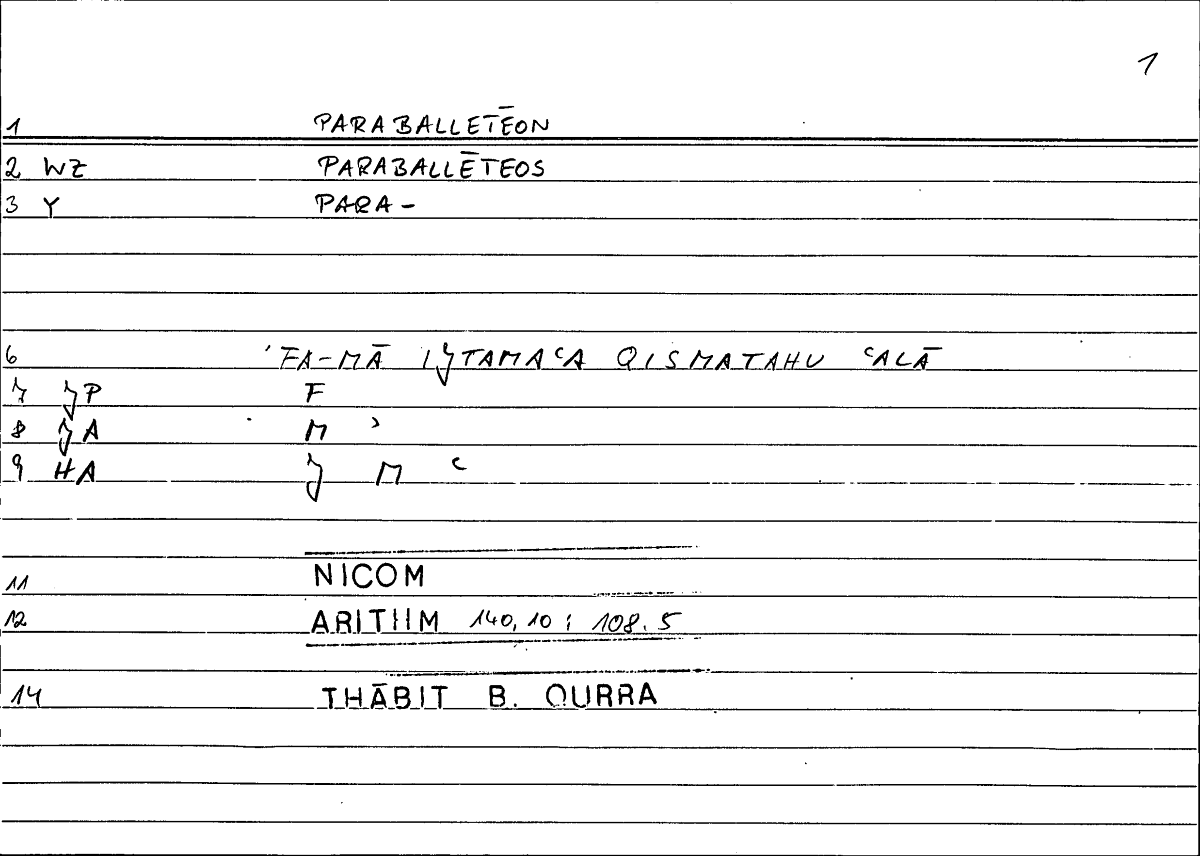 1
1 PARABALLETĒON
2 WZ PARABALLĒTEOS
3 Y PARA-
6 'FA-MĀ IJTAMAʿA QISMATAHU ʿALĀ
7 JP F
8 JA M ʾ
9 HA J M ʿ
11 NICOM
12 ARITHM 140,10 ; 108.5
14 THĀBIT B. QURRA